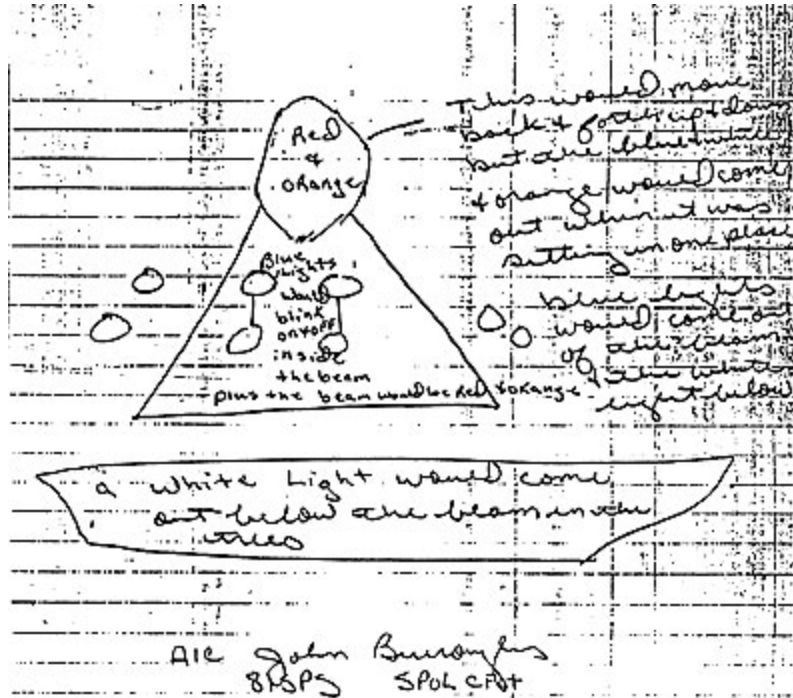 Red
&
ORange
This would move
back & forth up & down
but the blue white
& orange would come
out when it was
sitting in one place
Blue
Lights
would
blink
on & off
inside
the beam
plus the beam would be Red & ORange
blue lights
would come out
of the beam
& the white
light below
a white Light would come
out below the beam in the
trees
A1C John Burroughs
81SPS